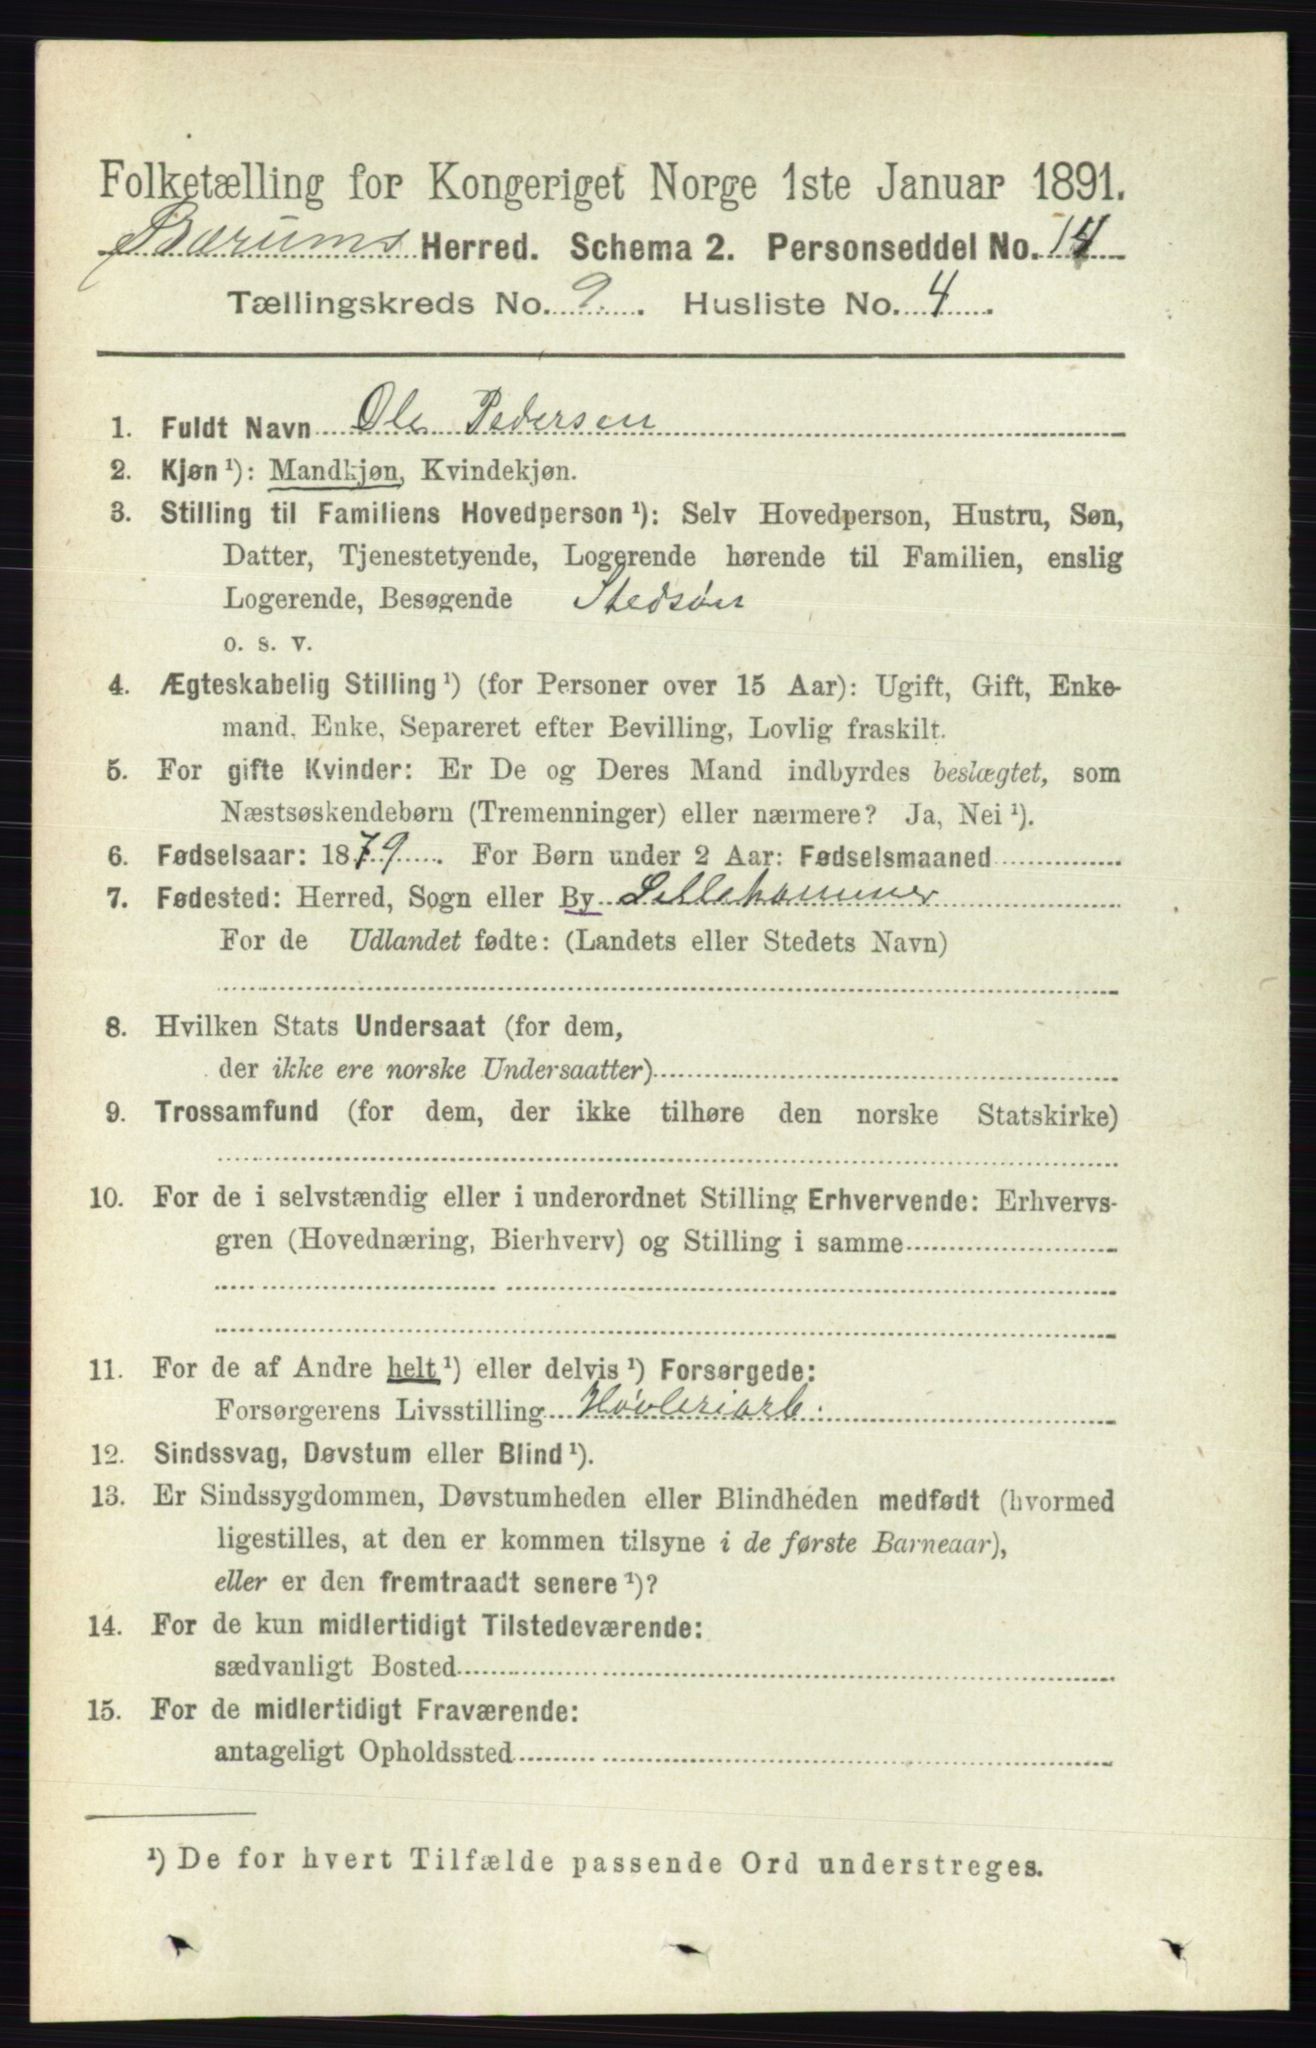 Folketælling for Kongeriget Norge 1ste Januar 1891.
Bærums Herred. Schema 2. Personseddel No. 14
Tællingskreds No. 9. Husliste No. 4.
1. Fuldt Navn Ole Pedersen
2. Kjøn ¹): Mandkjøn, Kvindekjøn.
3. Stilling til Familiens Hovedperson ¹): Selv Hovedperson, Hustru, Søn,
Datter, Tjenestetyende, Logerende hørende til Familien, enslig
Logerende, Besøgende Stedsøn
o. s. v.
4. Ægteskabelig Stilling ¹) (for Personer over 15 Aar): Ugift, Gift, Enke-
mand, Enke, Separeret efter Bevilling, Lovlig fraskilt.
5. For gifte Kvinder: Er De og Deres Mand indbyrdes beslægtet, som
Næstsøskendebørn (Tremenninger) eller nærmere? Ja, Nei ¹).
6. Fødselsaar: 1879. For Børn under 2 Aar: Fødselsmaaned
7. Fødested: Herred, Sogn eller By Lillehammer
For de Udlandet fødte: (Landets eller Stedets Navn)
8. Hvilken Stats Undersaat (for dem,
der ikke ere norske Undersaatter)
9. Trossamfund (for dem, der ikke tilhøre den norske Statskirke)
10. For de i selvstændig eller i underordnet Stilling Erhvervende: Erhvervs-
gren (Hovednæring, Bierhverv) og Stilling i samme
11. For de af Andre helt ¹) eller delvis ¹) Forsørgede:
Forsørgerens Livsstilling Høvleriarb.
12. Sindssvag, Døvstum eller Blind ¹).
13. Er Sindssygdommen, Døvstumheden eller Blindheden medfødt (hvormed
ligestilles, at den er kommen tilsyne i de første Barneaar),
eller er den fremtraadt senere ¹)?
14. For de kun midlertidigt Tilstedeværende:
sædvanligt Bosted
15. For de midlertidigt Fraværende:
antageligt Opholdssted
¹) De for hvert Tilfælde passende Ord understreges.